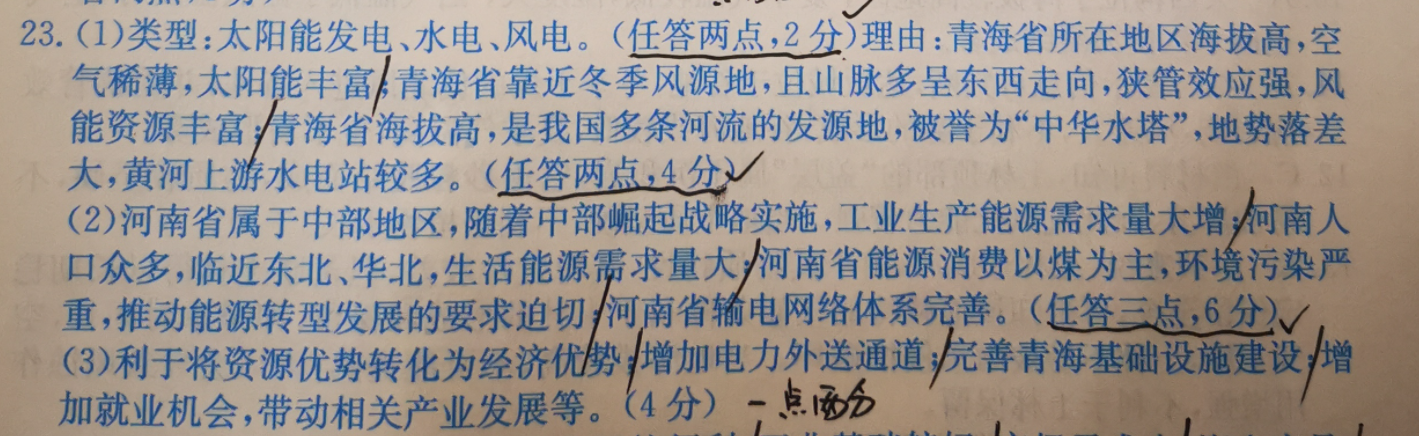 23. (1)类型:太阳能发电、水电、风电。(任答两点,2分)理由:青海省所在地区海拔高,空
气稀薄,太阳能丰富;青海省靠近冬季风源地,且山脉多呈东西走向,狭管效应强,风
能资源丰富;青海省海拔高,是我国多条河流的发源地,被誉为“中华水塔”,地势落差
大,黄河上游水电站较多。(任答两点,4分)
(2)河南省属于中部地区,随着中部崛起战略实施,工业生产能源需求量大增;河南人
口众多,临近东北、华北,生活能源需求量大;河南省能源消费以煤为主,环境污染严
重,推动能源转型发展的要求迫切;河南省输电网络体系完善。(任答三点,6分)
(3)利于将资源优势转化为经济优势;增加电力外送通道;完善青海基础设施建设;增
加就业机会,带动相关产业发展等。(4分) 一点两分